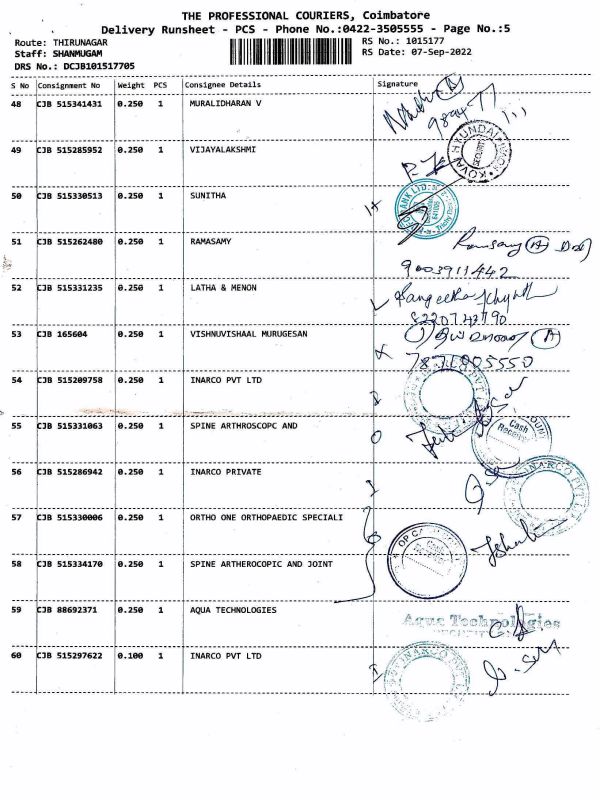 THE PROFESSIONAL COURIERS, Coimbatore
Delivery Runsheet - PCS - Phone No.:0422-3505555 - Page No.:5
Route: THIRUNAGAR
RS No.: 1015177
Staff: SHANMUGAM
RS Date: 07-Sep-2022
DRS No.: DCJB101517705
S No Consignment No Weight PCS Consignee Details Signature
48 CJB 515341431 0.250 1 MURALIDHARAN V
49 CJB 515285952 0.250 1 VIJAYALAKSHMI
KOVAI HYUNDAI
SECURITY
50 CJB 515330513 0.250 1 SUNITHA
BANK LTD
51 CJB 515262480 0.250 1 RAMASAMY
Ramsamy
9003911442
52 CJB 515331235 0.250 1 LATHA & MENON
Sangeetha
53 CJB 165604 0.250 1 VISHNUVISHAAL MURUGESAN
7871005550
54 CJB 515209758 0.250 1 INARCO PVT LTD
INARCO PVT
55 CJB 515331063 0.250 1 SPINE ARTHROSCOPC AND
Cash
56 CJB 515286942 0.250 1 INARCO PRIVATE
INARCO PVT
57 CJB 515330006 0.250 1 ORTHO ONE ORTHOPAEDIC SPECIALI
58 CJB 515334170 0.250 1 SPINE ARTHEROCOPIC AND JOINT
Cash
59 CJB 88692371 0.250 1 AQUA TECHNOLOGIES
Aqua Technologies
60 CJB 515297622 0.100 1 INARCO PVT LTD
INARCO PVT